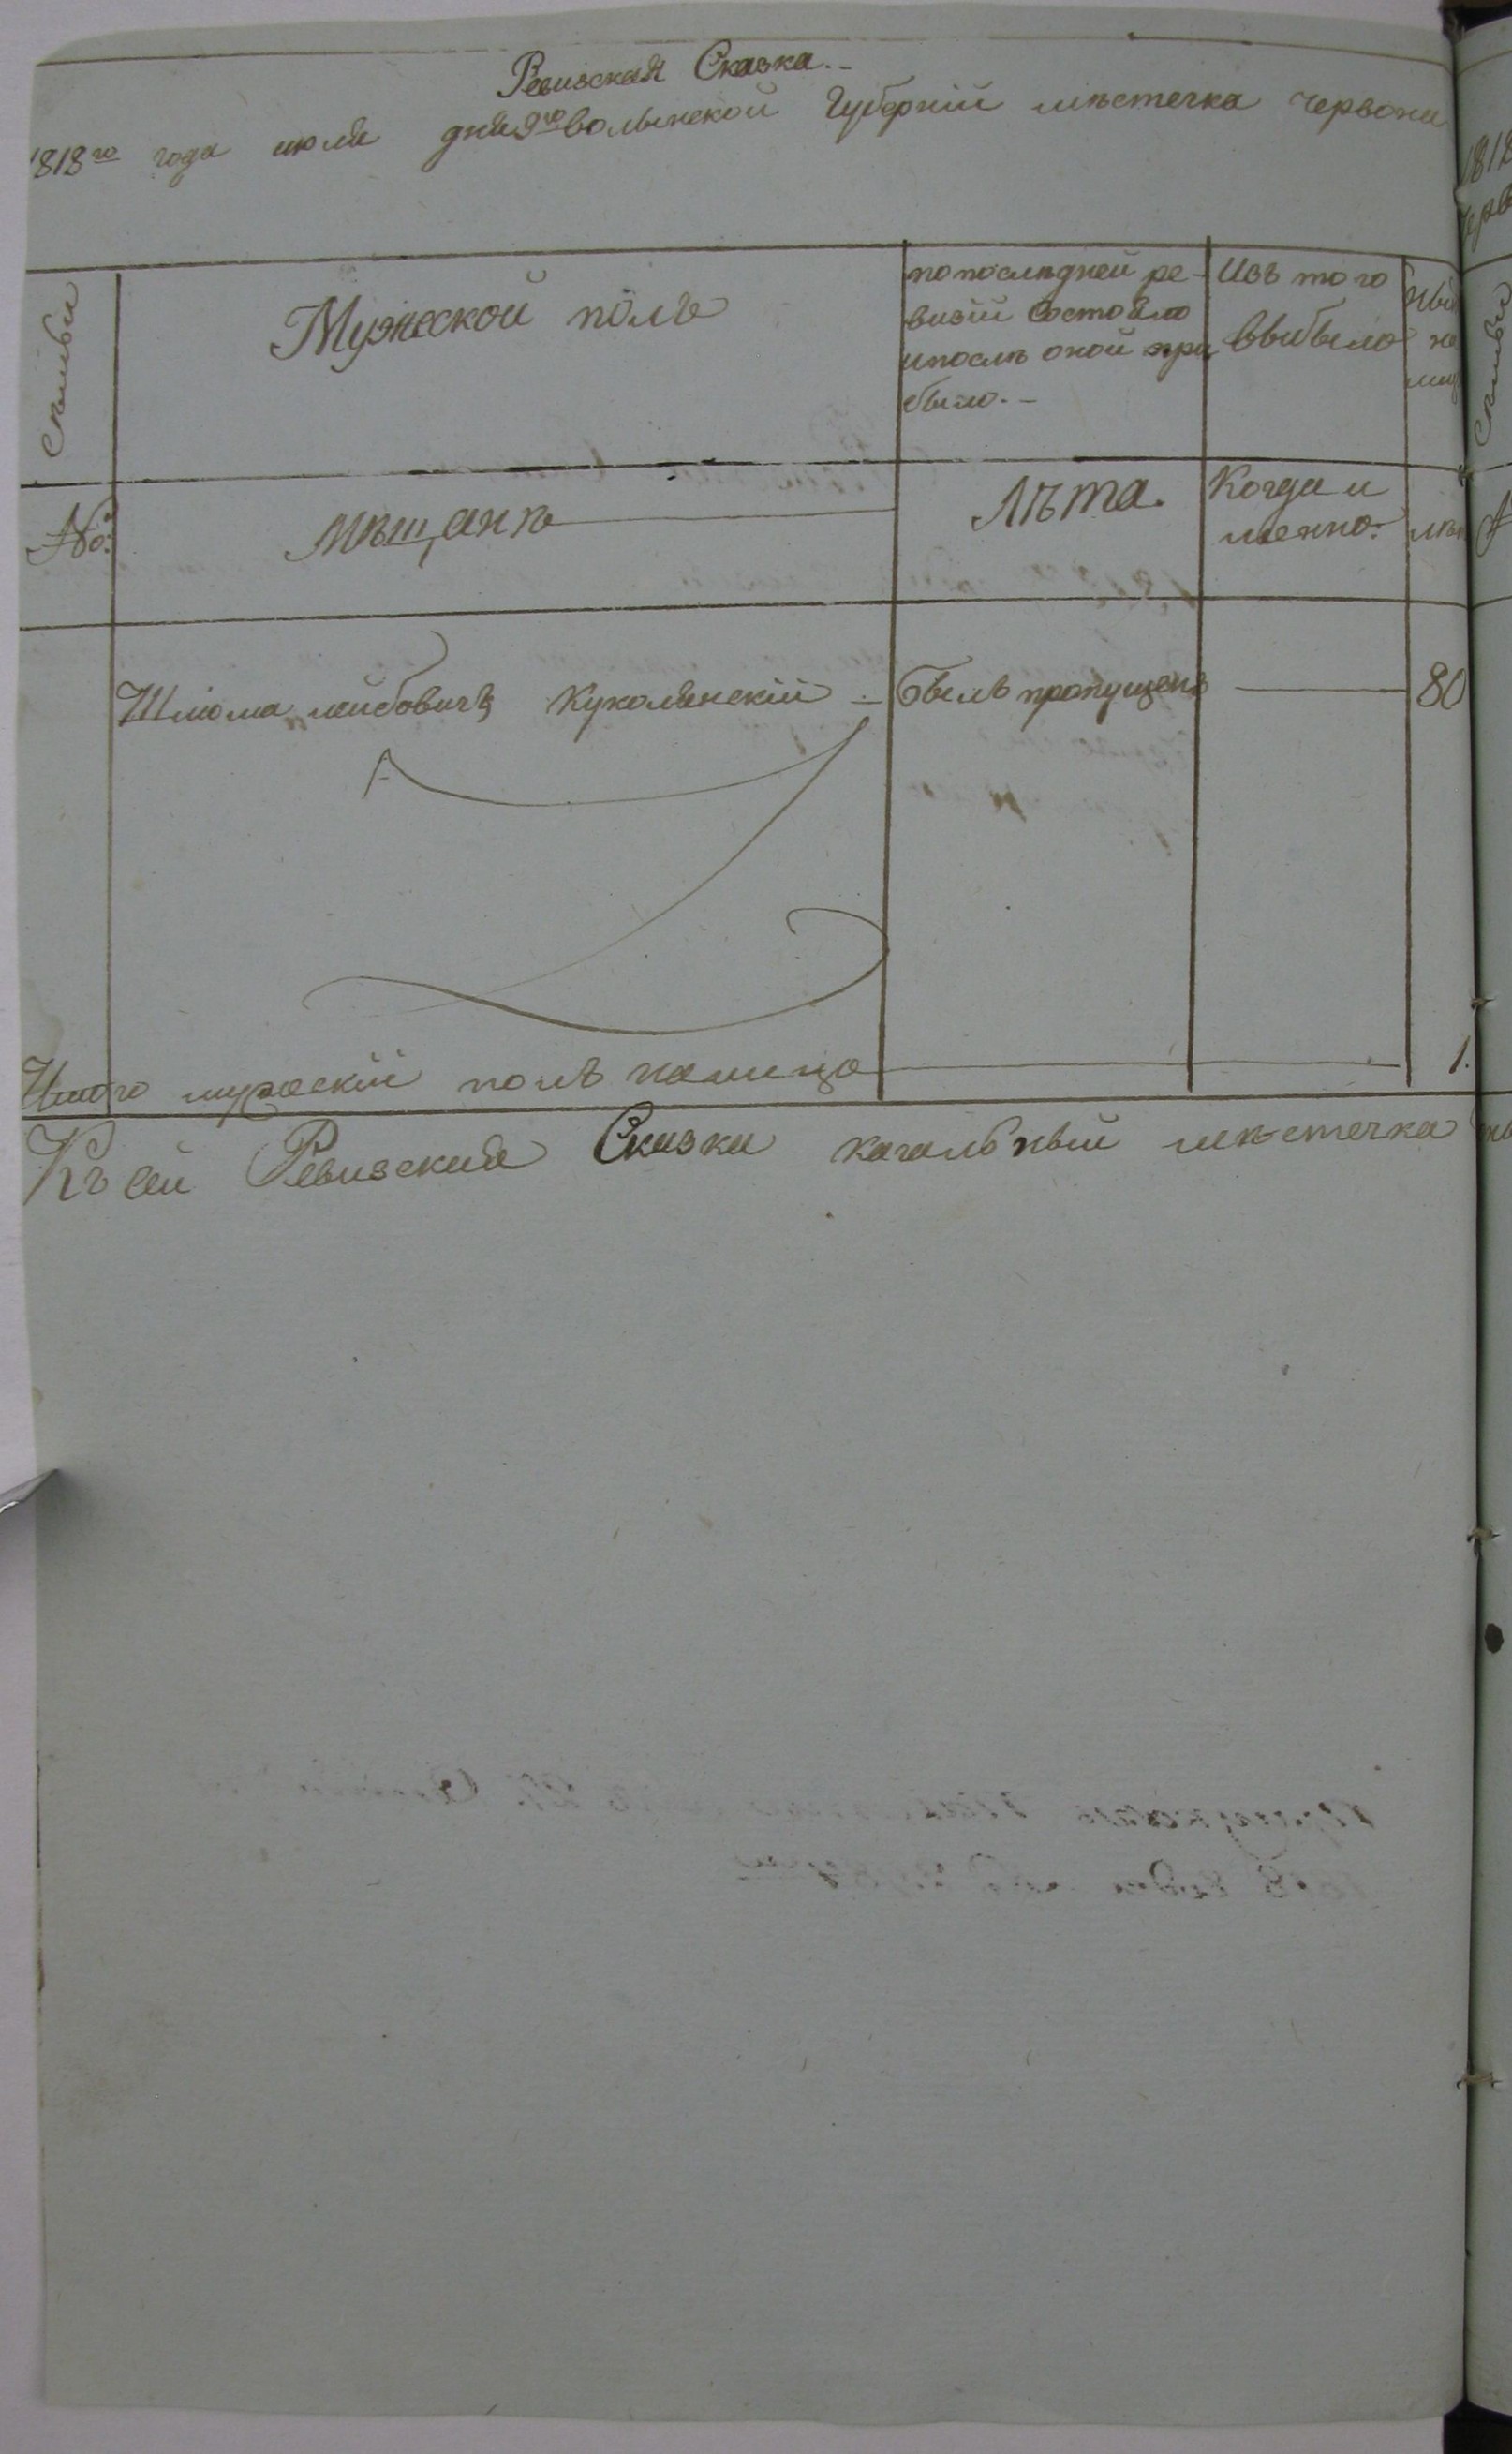 Ревизская Сказка.-
1818го года июля дня 9го волынской Губерній мѣстечка Червони
Семьи
Мужеской полъ
по послѣдней ре-
визіи состояло
и послѣ оной при
было.-
Изъ того
выбыло
№:
мѣщанъ
Лѣта.
Когда и
менно:
Шлюма лейбовичъ Куколвнскій - былъ пропущенъ 80
Итого мужескій полъ налицо 1.
Къ сей Ревизския Сказки кагальный мѣстечка